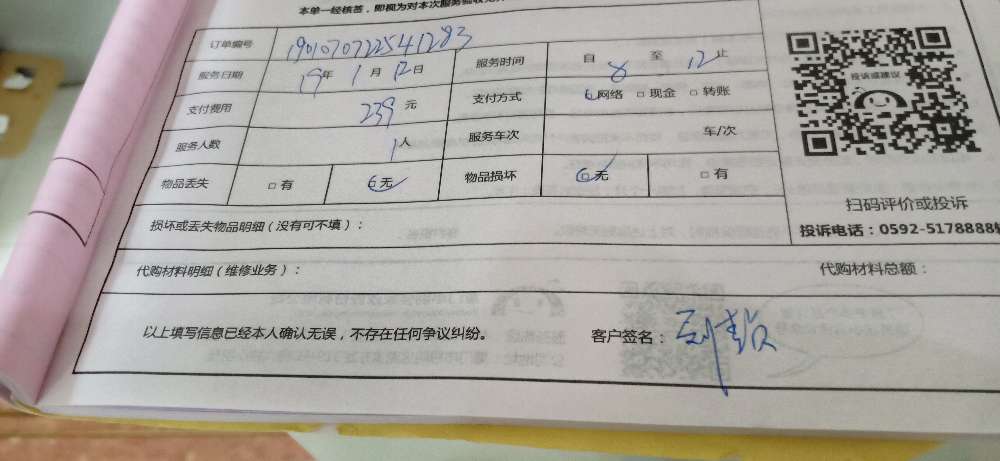 本单一经核签，即视为对本次服务验收
订单编号 190107072254 1283
服务日期 19年 1月 12日 服务时间 自 8 至 12止
支付费用 239 元 支付方式 网络 □ 现金 □ 转账
服务人数 1人 服务车次 车/次
物品丢失 □ 有 无 物品损坏 □ 无 □ 有
损坏或丢失物品明细（没有可不填）：
代购材料明细（维修业务）： 代购材料总额：
以上填写信息已经本人确认无误，不存在任何争议纠纷。 客户签名：
投诉或建议
扫码评价或投诉
投诉电话：0592-5178888